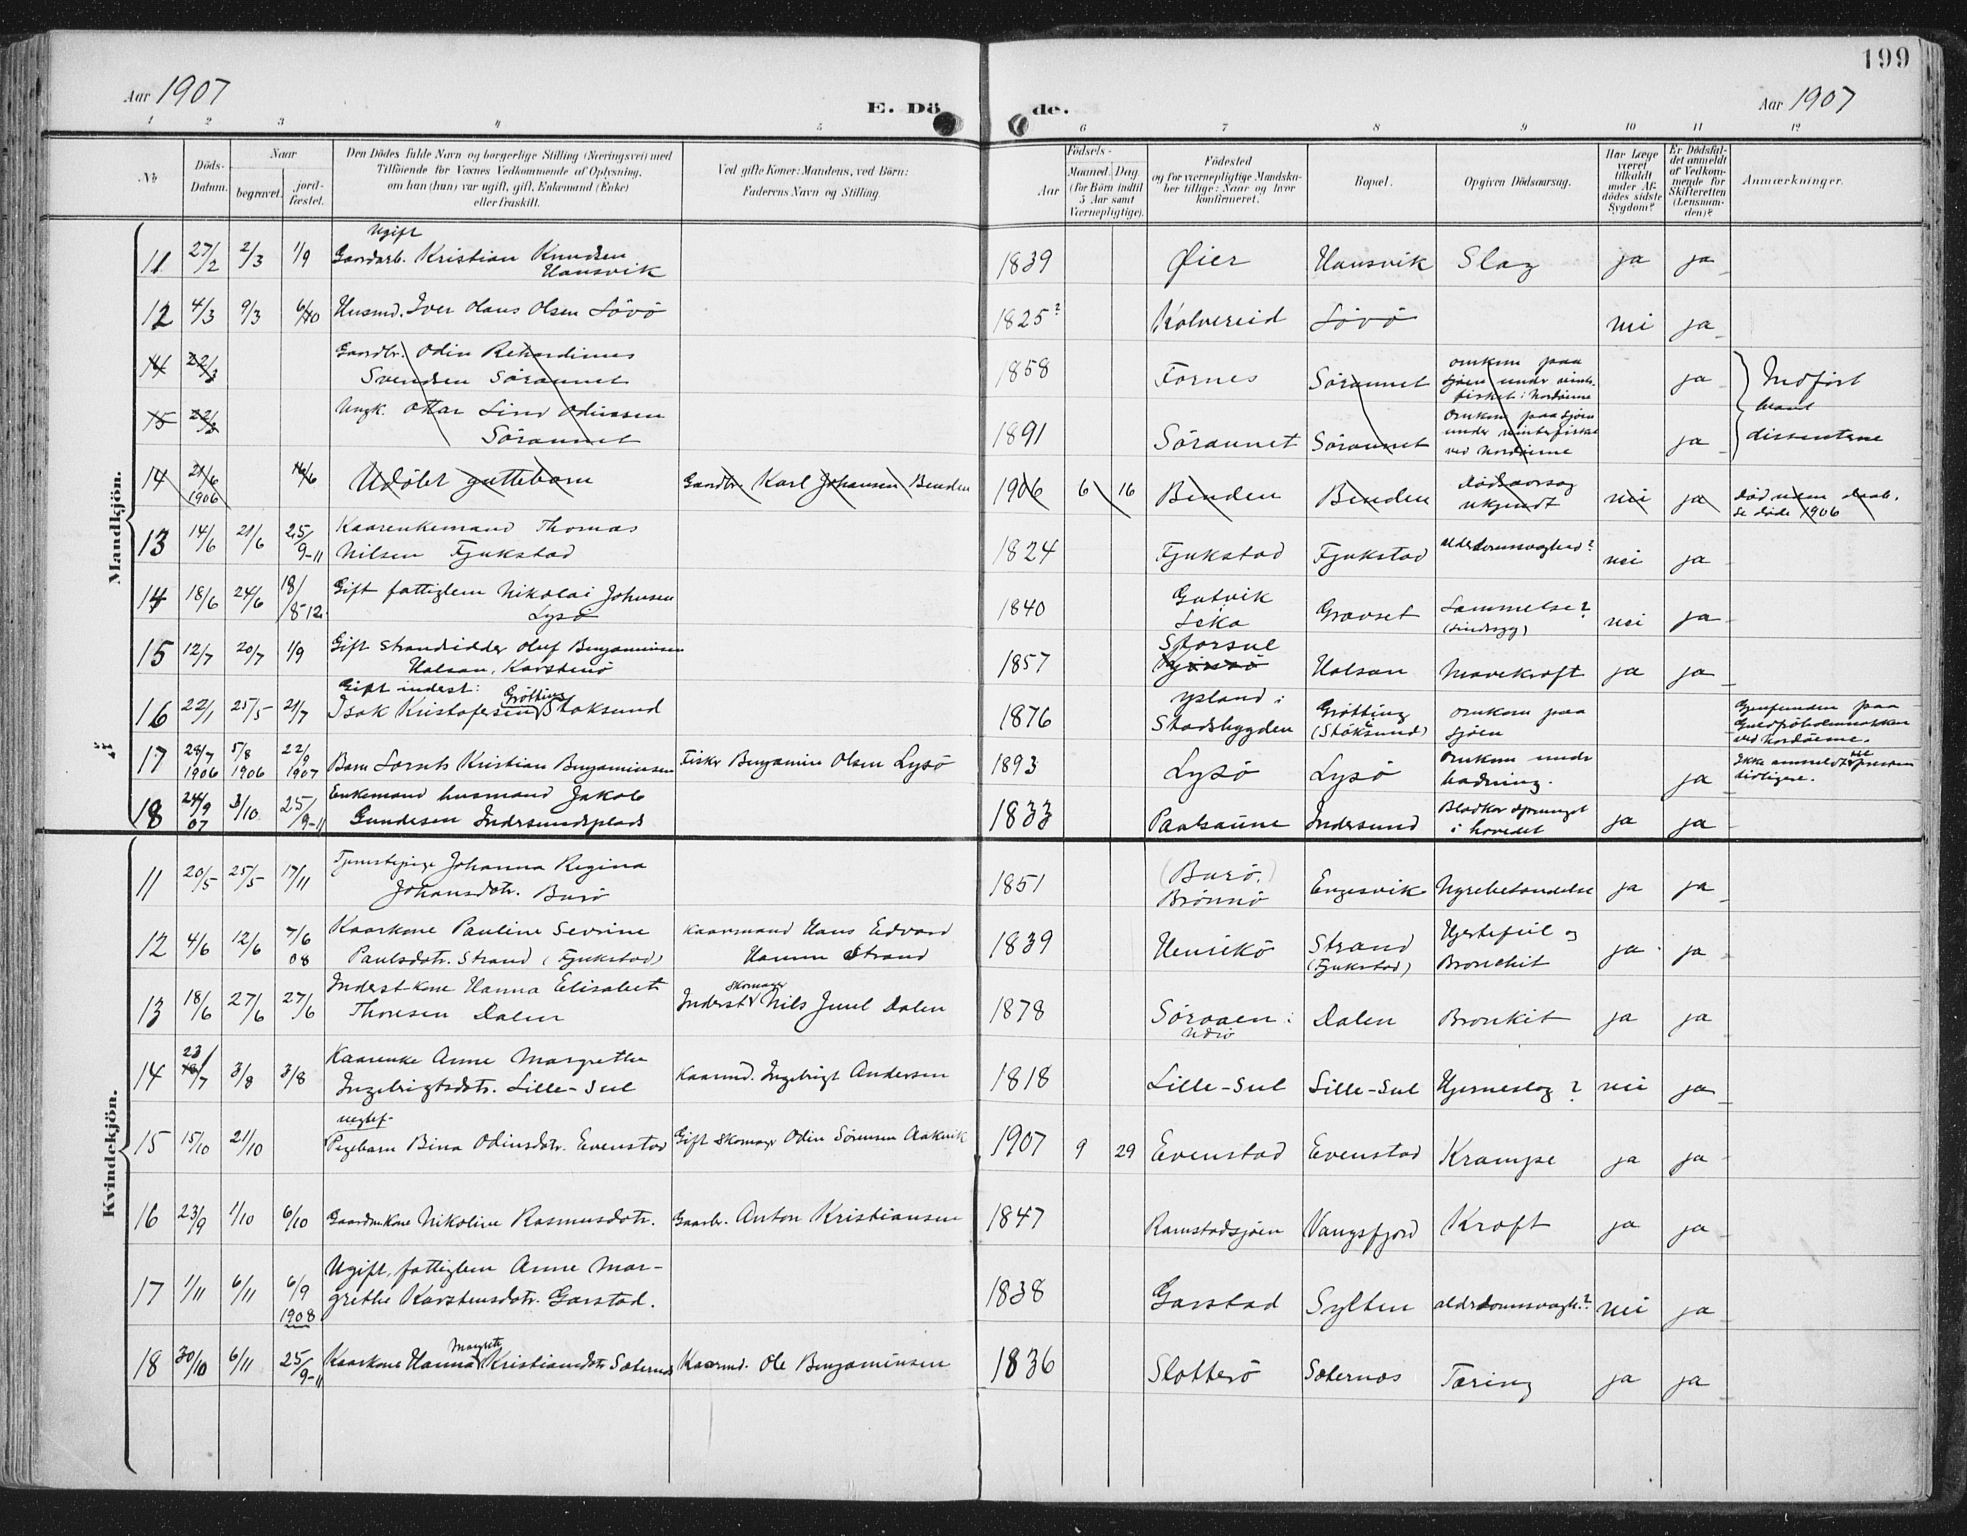 199
Aar 1907
E. Dö de.
Aar 1907
1 2 3 4 5 6 7 8 9 10 11 12
No
Döds-
Datum.
Naar
begravet.
jord-
fæstet.
Den Dödes fulde Navn og borgerlige Stilling (Næringsvei) med
Tilföiende for Voxnes Vedkommende af Oplysning,
om han (hun) var ugift, gift, Enkemand (Enke)
eller fraskilt.
Ved gifte Koner: Mandens, ved Börn:
Faderens Navn og Stilling.
Födsels-
Aar
Maaned. Dag
(for Börn indtil
5 Aar samt
Værnepligtige).
Födested
og for værnepligtige Mandska-
ber tillige: Naar og hvor
konfirmeret.
Bopæl.
Opgiven Dödsaarsag.
Har Læge
været
tilkaldt
under Af-
dödes sidste
Sygdom?
Er Dödsfal-
det anmeldt
af Vedkom-
mende for
Skifteretten
(Lensman-
den)?
Anmærkninger.
Mandkjön.
Ugift
11 27/2 2/3 1/9 Gaardarb. Kristian Knudsen
Hansvik 1839 Øier Hansvik Slag ja ja
12 4/3 9/3 6/10 Husmd. Iver Olaus Olsen Lövö 1825? Kolvereid Lövö nei ja
14 22/3 Gaardbr. Odin
Svendsen Söraunet 1858 Fornes Söraunet omkom paa
sjöen under vinter-
fisket i Nordöerne ja Indfört
blant
dissenterne
15 22/3 Ungk. Ottar Odinssen
Söraunet 1891 Söraunet Söraunet omkom paa sjöen
under vinterfisket
ved Nordöerne ja
14 21/6 1906 Udöbt guttebarn Gaardbr. Karl Johansen Benden 1906 6 16 Benden Benden Dödsaarsag
ukjendt nei ja död uden daab.
Se döde 1906
13 14/6 21/6 25/9-11 Kaarenkemand Thomas
Nilsen Fjukstad 1824 Fjukstad Fjukstad alderdomsvaghed? nei ja
14 18/6 24/6 18/8-12 Gift fattiglem Nikolai Johnsen
Lysö 1840 Gutvik
Leka Gravset Lammelse?
(sindssyg) nei ja
15 12/7 20/7 1/9 Gift Strandsidder Oluf Benjaminsen
Halsan, Karstenö 1857 Storsul
Halsan Mavekræft ja ja
Gift inderst:
16 22/1 25/5 21/7 Isak Kristofersen Grötting Stoksund 1876 Ysland i
Stadsbygden Grötting
(Stöksund) omkom paa
sjöen Gjenfunden paa
ved Nordöerne.
17 28/7 1906 5/8 1906 22/9 1907 Barn Lornts Kristian Benjaminsen Fisker Benjamin Olsen Lysö 1893 Lysö Lysö Omkom under
badning. ja Ikke anmeldt til presten
tidligere.
18 24/9 07 3/10 25/9-11 Enkemand husmand Jakob
Gundesen Indersundsplads 1833 Paalsaune Indersund Blodkar sprunget
i hovedet ja ja
Kvindekjön.
11 20/5 25/5 17/11 Tjenestepige Johanna Regina
Johansdotr. Burö 1851 (Burö.)
Brönnö Engesvik Nyrebetændelse ja ja
12 4/6 12/6 7/6 08 Kaarkone Pauline Sevrine
Paulsdotr. Strand (Fjukstad) Kaarmand Hans Edvard
Hansen Strand 1839 Henrikö Strand
(Fjukstad) Hjertefeil og
Bronchit ja ja
13 18/6 27/6 27/6 Inderst kone Hanna Elisabeth
Thoresen Dalen Inderst Skomager Nils Juul Dalen 1878 Söraaen i
Nærö Dalen Bronkit ja ja
14 23/7 3/8 3/8 Kaarenke Anne Margrethe
Ingebrigtsdotr. Lille-Sul Kaarmd. Ingebrigt Andersen 1818 Lille-Sul Lille-Sul Hjerneslag? nei ja
uegtef.
15 15/10 21/10 Pigebarn Bina Odinsdotr. Evenstad Gift Skomager Odin Sörensen Aakvik 1907 9 29 Evenstad Evenstad Krampe ja ja
16 23/9 1/10 6/10 Gaardmkone Nikoline Rasmusdotr. Gaarbr. Anton Kristiansen 1847 Ramstadsjöen Vangsfjord Kræft ja ja
17 1/11 6/11 6/9 1908 Ugift, fattiglem Anne Mar-
grethe Karstensdotr. Garstad. 1838 Garstad Sylten alderdomsvagh.? nei ja
18 30/10 6/11 25/9-11 Kaarkone Hanna Margrete Kristiansdotr. Saternes Kaarmd. Ole Benjaminsen 1836 Slotterö Saternes Tæring ja ja